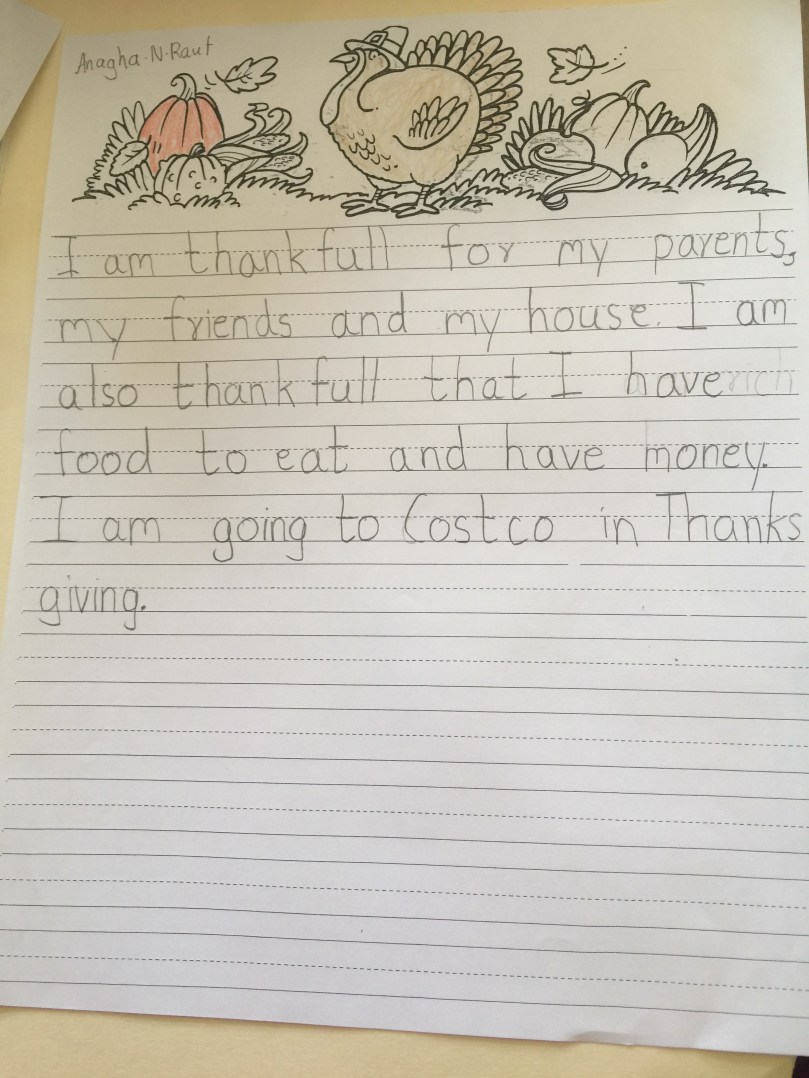 Anagha·N·Raut
I am thankfull for my parents,
my friends and my house. I am
also thankfull that I have
food to eat and have money.
I am going to Costco in Thanks
giving.